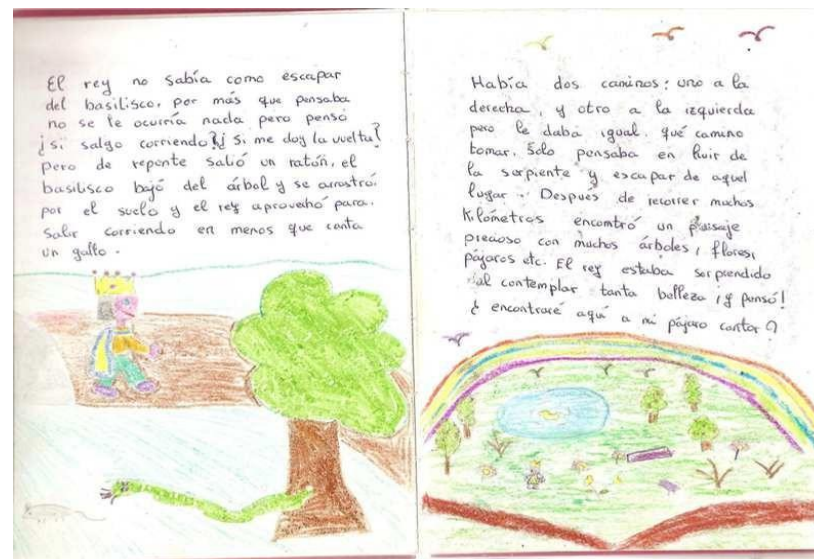 El rey no sabía como escapar
del basilisco, por más que pensaba
no se le ocurría nada pero pensó
¡si salgo corriendo?¡ Si me doy la vuelta?
pero de repente salió un ratón, el
basilisco bajó del árbol y se arrastró
por el suelo y el rey aprovechó para.
salir corriendo en menos que canta
un gallo.
Había dos caminos: uno a la
derecha, y otro a la izquierda
pero le daba igual. qué camino
tomar. Solo pensaba en huir de
la serpiente y escapar de aquel
lugar. Después de recorrer muchos
Kilómetros encontró un paisaje
precioso con muchos árboles, flores,
pájaros etc. El rey estaba sorprendido
al contemplar tanta belleza ¡y pensó!
¿ encontraré aquí a mi pájaro cantor?